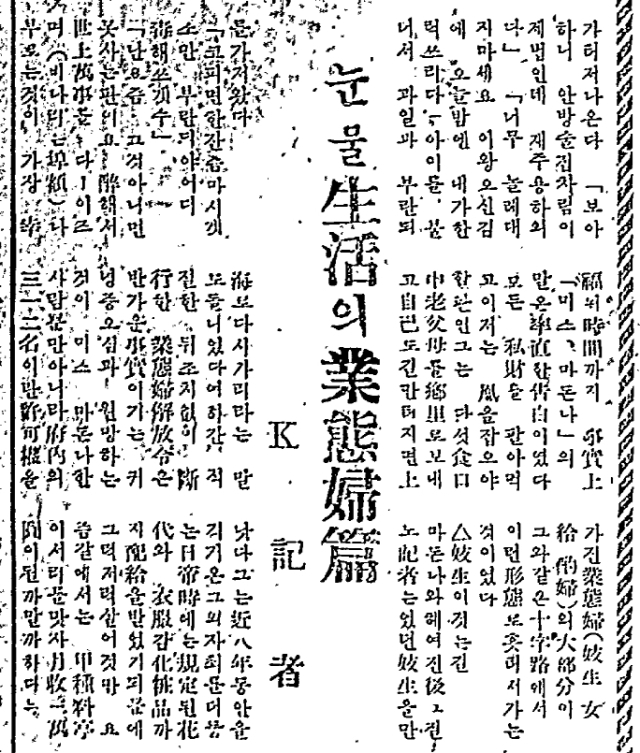 가터저나온다 「보아
하니 안방술집차림이
제법인데 재주용하외
다」 「너무 놀래대
지마세요 이왕오신김
에 오늘밤엔 내가한
턱쓰리다」 아이들 불
너서 과일과 부란듸
눈물生活의業態婦篇
K記者
를가저왔다
「코피면한잔즘마시갯
소만 부란듸야어듸
毒해쓰겟수」
「난요즘 그것아니면
못사는판의요 醉해서
世上萬事를 다ー이즈
며 (비나리는埠頭) 나
부르는것이 가장 幸
福의時間까지 事實上
「미스 마돈나」의
말은率直한告白이였다
모든 私財를 판아먹
고이저는 風을잡으야
할판인그는 다섯食口
中老父母를鄕里로보내
고自己도긴만터지면上
海로다사가리라는 말
도들니였다여하간 적
절한 뒤조치없이 斷
行한 業態婦解放令은
반가운事實이기는 커
녕증오심과 원망하는
것이 미스 마돈나한
사람뿐만아니라府內의
三一二名이란許可權을
가진業態婦(妓生 女
給 酌婦)의大部分이
그와같은十字路에서
이런形態로 가는
것이였다
△妓生이것는길
마돈나와헤여진後
노記者는있던妓生을만
낫다그는近八年동안을
그의자최를더듬
는日帝時에는規定된花
代와 衣服감化粧品까
지配給을받었기되문에
그럭저럭살어것만 요
즘같에서는 甲種料亭
이서리를맞자月收二萬
圓이된까말까하다는